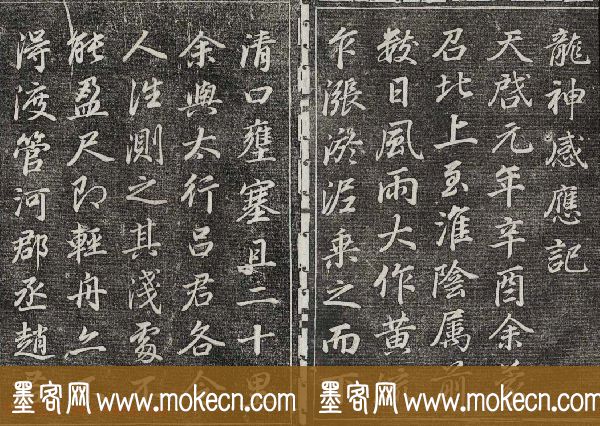 龍神感應記
天啓元年辛酉余
召北上至淮陰属前
數日風雨大作黄
乍漲淤泥乘之而下
清口壅塞且二十里
余與太行吕君各令
人往測之其淺處不
能盈尺即輕舟亦不
得渡管河郡丞趙君
墨客网 www.mokecn.com 墨客网 www.mokecn.com